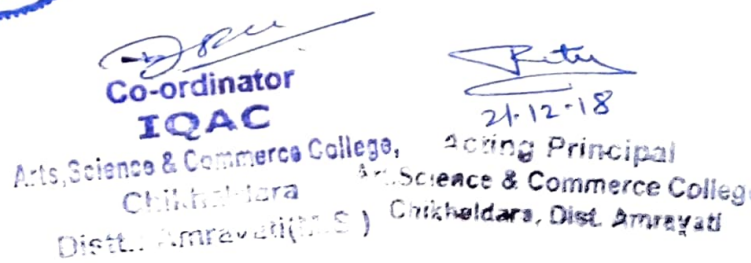 Co-ordinator
IQAC
Arts, Science & Commerce College,
Chikhaldara
Distt.: Amravati(M.S.)
21-12-18
Acting Principal
Art. Science & Commerce Colleg
Chikhaldara, Dist. Amravati